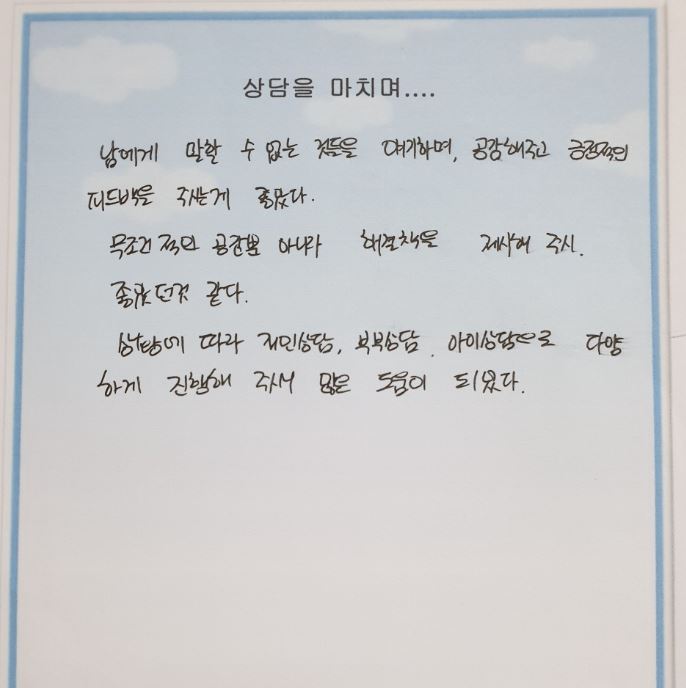 상담을 마치며....
남에게 말할 수 없는 것들을 얘기하며, 공감해주고 긍정적인
피드백을 주시는게 좋았다.
무조건적인 공감뿐 아니라 해결책을 제시해 주시.
좋았던것 같다.
상황에 따라 개인상담, 부부상담, 아이상담으로 다양
하게 진행해 주셔서 많은 도움이 되었다.